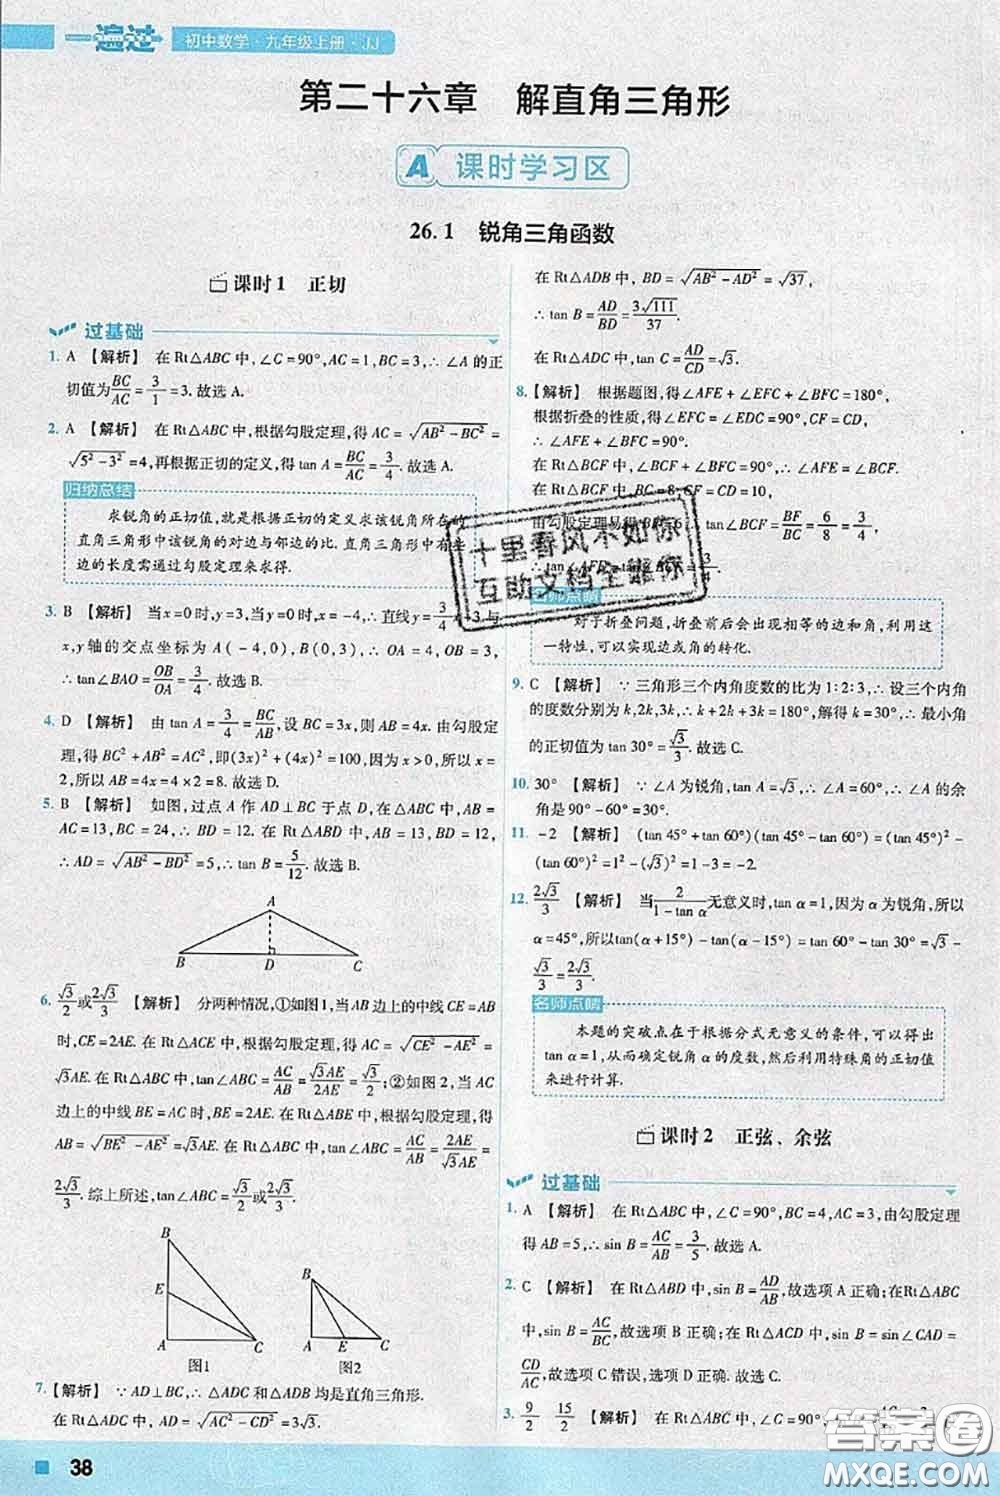 一遍过 初中数学·九年级上册·JJ
第二十六章 解直角三角形
A 课时学习区
26.1 锐角三角函数
课时1 正切
过基础
1. A 【解析】 在Rt△ABC中,∠C=90°,AC=1,BC=3,∴∠A的正
切值为BC/AC=3/1=3.故选A.
2. A 【解析】 在Rt△ABC中,根据勾股定理,得AC=√(AB²-BC²)=
√(5²-3²)=4,再根据正切的定义,得tan A=BC/AC=3/4.故选A.
归纳总结
求锐角的正切值,就是根据正切的定义求该锐角所在的
直角三角形中该锐角的对边与邻边的比.直角三角形中有些
边的长度需通过勾股定理来求得.
3. B 【解析】 当x=0时,y=3,当y=0时,x=-4,∴直线y=3/4x+3与
x,y轴的交点坐标为A(-4,0),B(0,3),∴OA=4,OB=3,
∴tan∠BAO=OB/OA=3/4.故选B.
4. D 【解析】 由tan A=3/4=BC/AB,设BC=3x,则AB=4x.由勾股定
理,得BC²+AB²=AC²,即(3x)²+(4x)²=100,因为x>0,所以x=
2,所以AB=4x=4×2=8.故选D.
5. B 【解析】 如图,过点A作AD⊥BC于点D,在△ABC中,AB=
AC=13,BC=24,∴BD=12.在Rt△ABD中,AB=13,BD=12,
∴AD=√(AB²-BD²)=5,∴tan B=5/12.故选B.
A
B D C
6. √3/2或2√3/3 【解析】 分两种情况,①如图1,当AB边上的中线CE=AB
时,CE=2AE.在Rt△ACE中,根据勾股定理,得AC=√(CE²-AE²)=
√3AE.在Rt△ABC中,tan∠ABC=AC/AB=√3AE/2AE=√3/2;②如图2,当AC
边上的中线BE=AC时,BE=2AE.在Rt△ABE中,根据勾股定理,得
AB=√(BE²-AE²)=√3AE.在Rt△ABC中,tan∠ABC=AC/AB=2AE/√3AE=
2√3/3.综上所述,tan∠ABC=√3/2或2√3/3.
B
E
A C
图1
B
A E C
图2
7. 【解析】 ∵AD⊥BC,∴△ADC和△ADB均是直角三角形.
在Rt△ADC中,AD=√(AC²-CD²)=3√3.
在Rt△ADB中,BD=√(AB²-AD²)=√37,
∴tan B=AD/BD=3√111/37.
在Rt△ADC中,tan C=AD/CD=√3.
8. 【解析】 根据题图,得∠AFE+∠EFC+∠BFC=180°,
根据折叠的性质,得∠EFC=∠EDC=90°,CF=CD,
∴∠AFE+∠BFC=90°.
在Rt△BCF中,∠BCF+∠BFC=90°,∴∠AFE=∠BCF.
在Rt△BCF中,BC=8,CF=CD=10,
由勾股定理易得BF=6,∴tan∠BCF=BF/BC=6/8=3/4.
十里春风不如你
互助文档全靠你
名师点睛
对于折叠问题,折叠前后会出现相等的边和角,利用这
一特性,可以实现边或角的转化.
9. C 【解析】 ∵三角形三个内角度数的比为1:2:3,∴设三个内角
的度数分别为k,2k,3k,∴k+2k+3k=180°,解得k=30°,∴最小角
的正切值为tan 30°=√3/3.故选C.
10. 30° 【解析】 ∵∠A为锐角,tan A=√3,∴∠A=60°,∴∠A的余
角是90°-60°=30°.
11. -2 【解析】 (tan 45°+tan 60°)(tan 45°-tan 60°)=(tan 45°)²-
(tan 60°)²=1²-(√3)²=1-3=-2.
12. 2√3/3 【解析】 当2/(1-tan α)无意义时,tan α=1,因为α为锐角,所以
α=45°,所以tan(α+15°)-tan(α-15°)=tan 60°-tan 30°=√3-
√3/3=2√3/3.
名师点睛
本题的突破点在于根据分式无意义的条件,可以得出
tan α=1,从而确定锐角α的度数,然后利用特殊角的正切值
来进行计算.
课时2 正弦、余弦
过基础
1. A 【解析】 在Rt△ABC中,∠C=90°,BC=4,AC=3,由勾股定理
得AB=5,∴sin B=AC/AB=3/5.故选A.
2. C 【解析】 在Rt△ABD中,sin B=AD/AB,故选项A正确;在Rt△ABC
中,sin B=AC/BC,故选项B正确;在Rt△ACD中,sin B=sin∠CAD=
CD/AC,故选项C错误,选项D正确.故选C.
3. 9/2 15/2 【解析】 在Rt△ABC中,∠C=90°,
答案圈
MXQE.COM
38